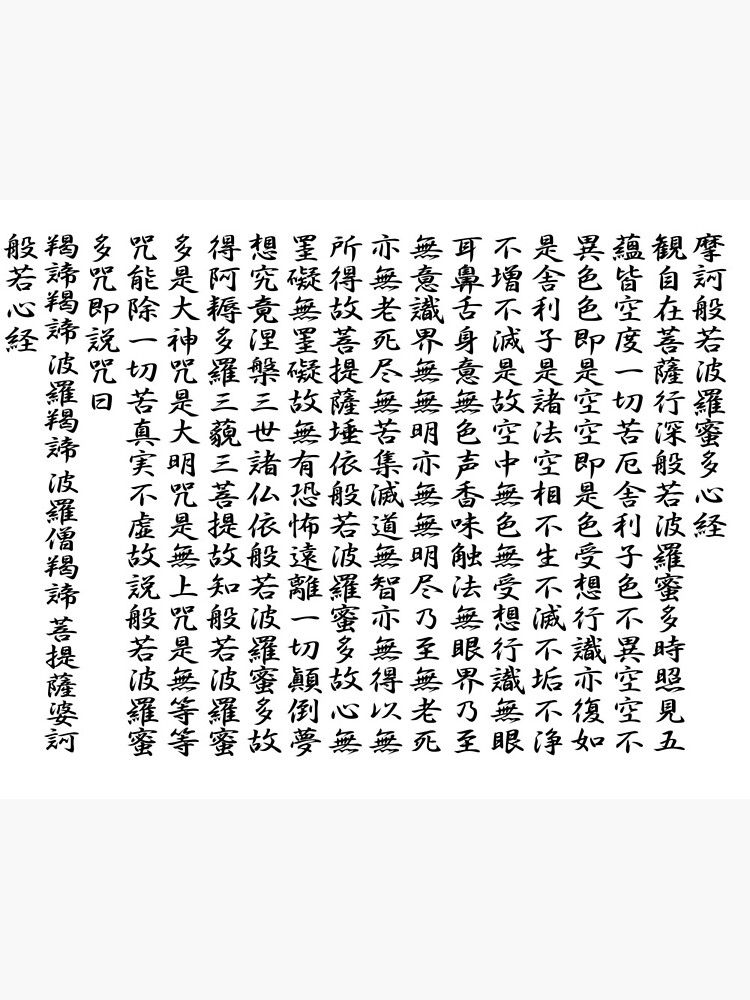 摩訶般若波羅蜜多心経
観自在菩薩行深般若波羅蜜多時照見五
蘊皆空度一切苦厄舎利子色不異空空不
異色色即是空空即是色受想行識亦復如
是舎利子是諸法空相不生不滅不垢不浄
不増不減是故空中無色無受想行識無眼
耳鼻舌身意無色声香味触法無眼界乃至
無意識界無無明亦無無明尽乃至無老死
亦無老死尽無苦集滅道無智亦無得以無
所得故菩提薩埵依般若波羅蜜多故心無
罣礙無罣礙故無有恐怖遠離一切顛倒夢
想究竟涅槃三世諸仏依般若波羅蜜多故
得阿耨多羅三藐三菩提故知般若波羅蜜
多是大神咒是大明咒是無上咒是無等等
咒能除一切苦真実不虚故説般若波羅蜜
多咒即説咒曰
羯諦羯諦 波羅羯諦 波羅僧羯諦 菩提薩婆訶
般若心経